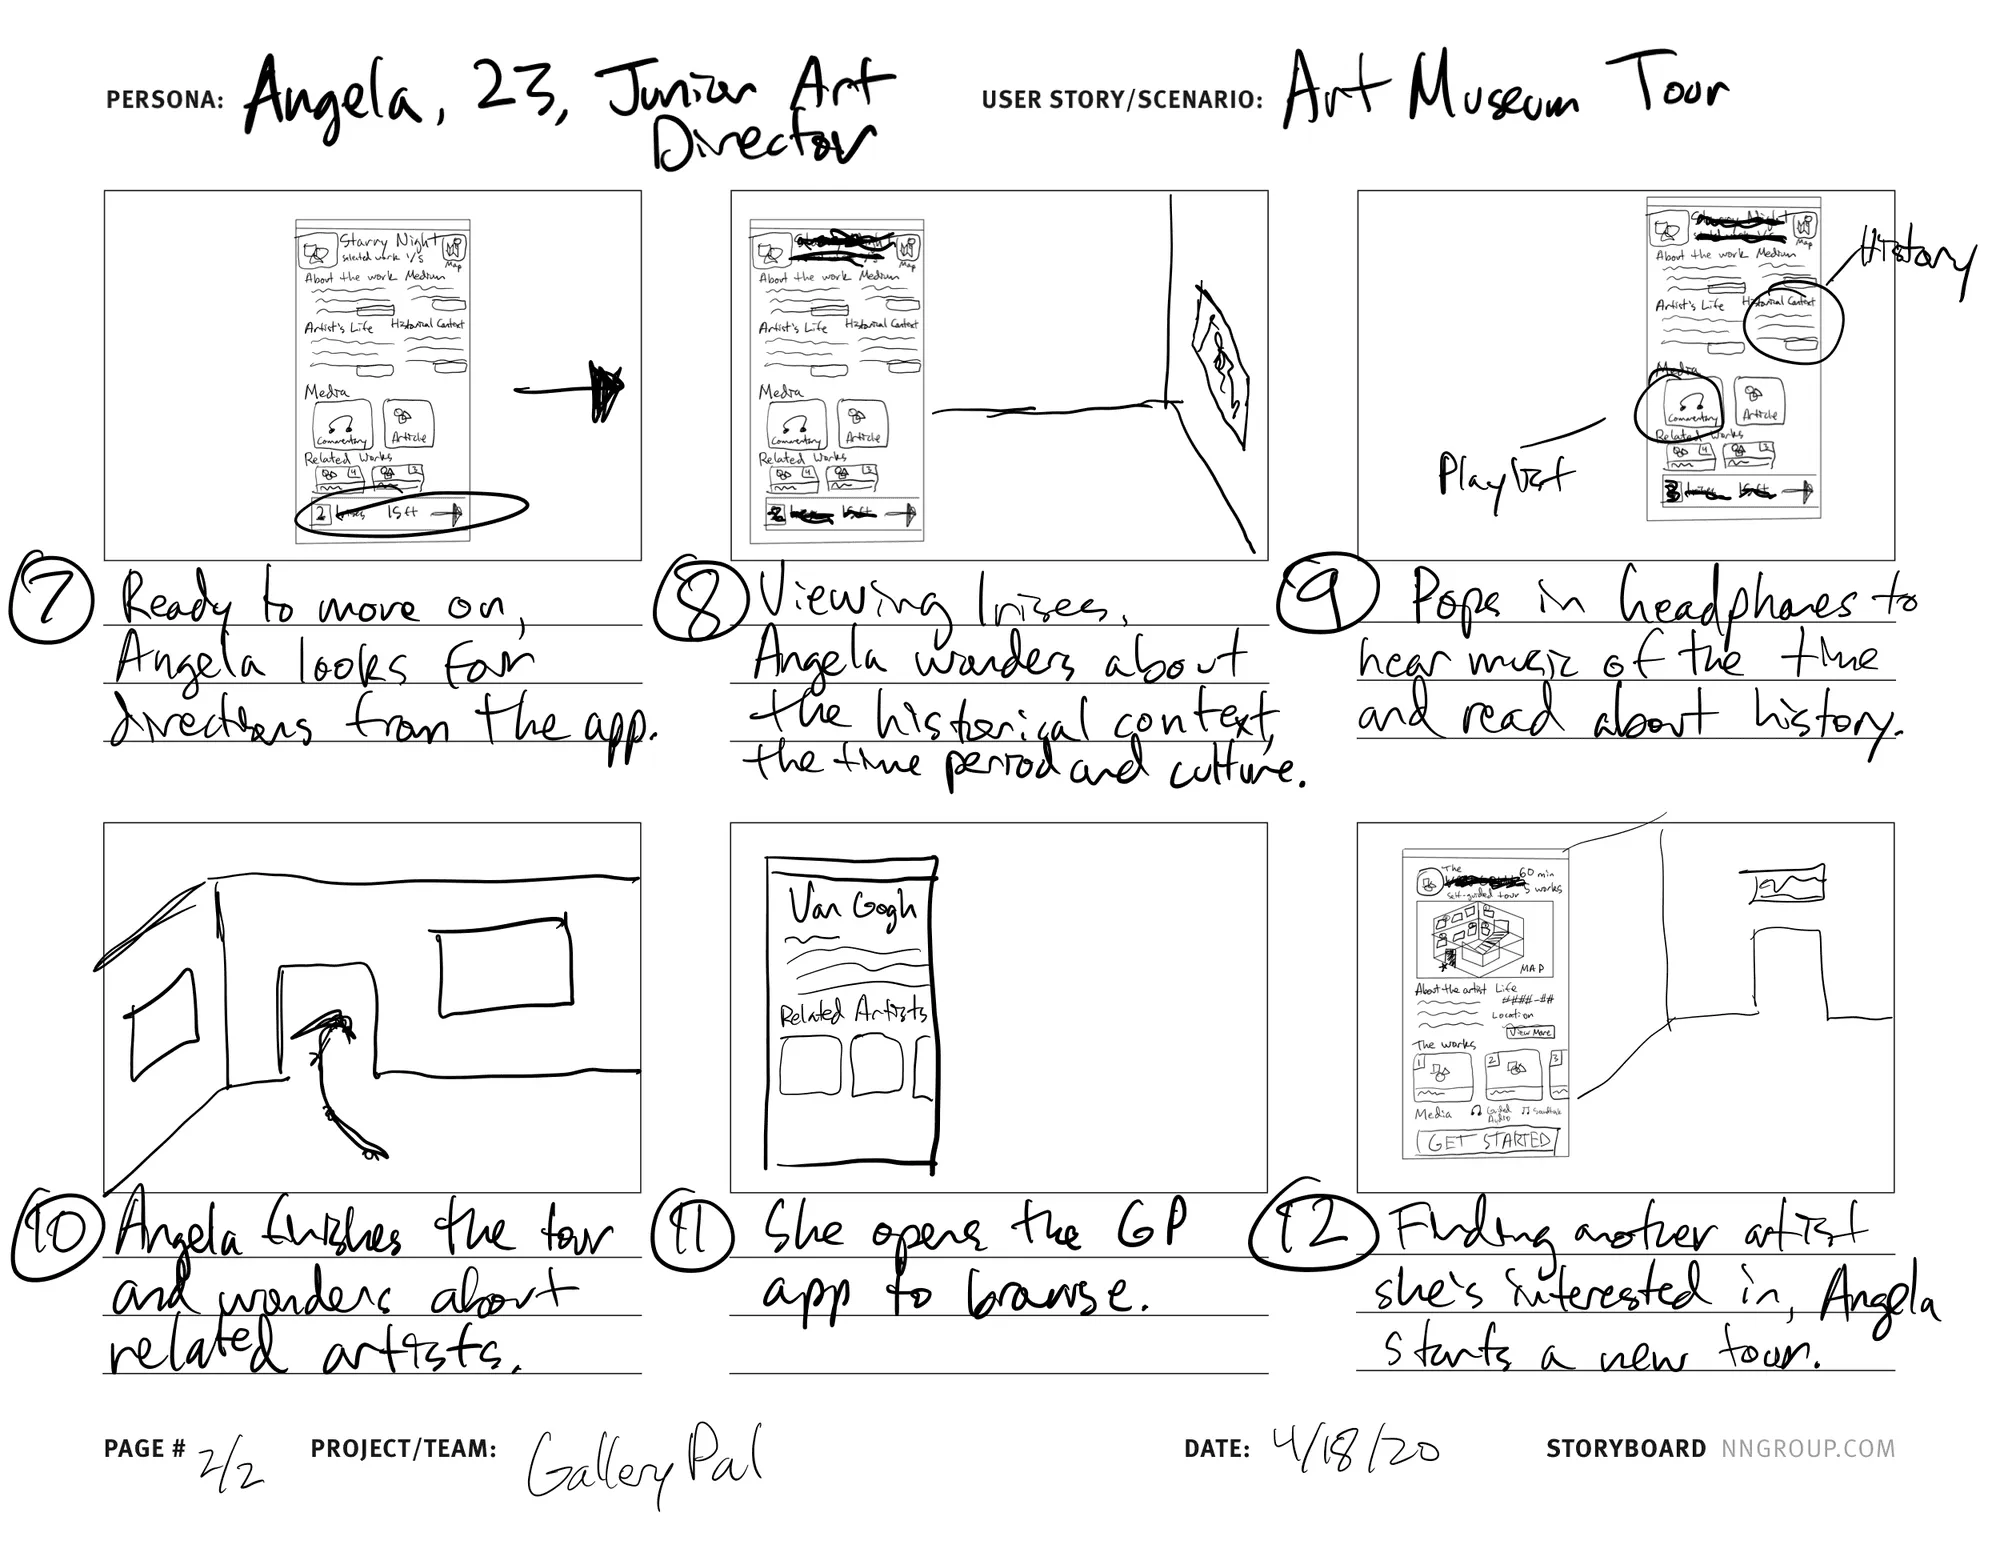 PERSONA: Angela, 23, Junior Art
Director
USER STORY/SCENARIO: Art Museum Tour
Starry Night
selected work 1/5
Map
About the work Medium
Artist's Life Historical Context
Media
Commentary Article
Related Works
4 3
2 Irises 15ft
7 Ready to move on,
Angela looks for
directions from the app.
Map
About the work Medium
Artist's Life Historical Context
Media
Commentary Article
Related Works
4 3
8 Viewing Irises,
Angela wonders about
the historical context,
the time period and culture.
Map
About the work Medium
Artist's Life Historical Context
History
Media
Commentary Article
Related Works
4 3
Playlist
9 Pops in headphones to
hear music of the time
and read about history.
10 Angela finishes the tour
and wonders about
related artists.
Van Gogh
Related Artists
11 She opens the GP
app to browse.
The 60 min
self-guided tour 5 works
MAP
About the artist Life
####-##
Location
View More
The works
1 2 3
Media Guided Audio Soundtrack
GET STARTED
12 Finding another artist
she's interested in, Angela
starts a new tour.
PAGE # 2/2 PROJECT/TEAM: GalleryPal DATE: 4/18/20 STORYBOARD NNGROUP.COM